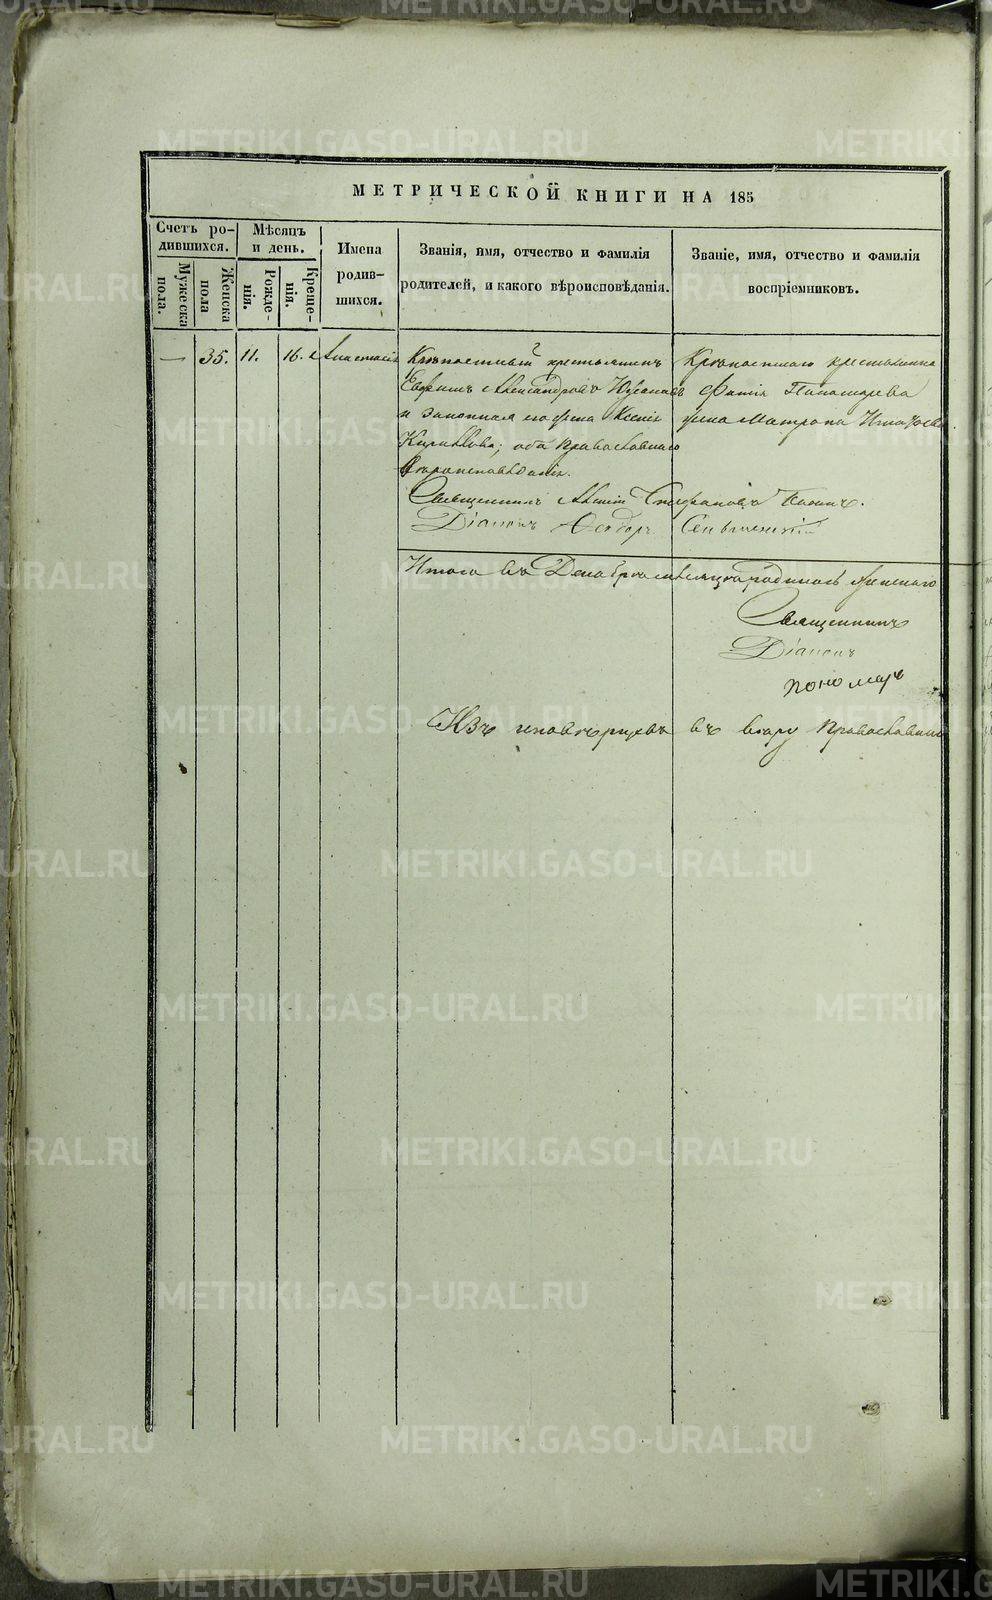 МЕТРИЧЕСКОЙ КНИГИ НА 185
Счетъ ро-
дившихся.
Мужеска
пола.
Женска
пола
Мѣсяцъ
и день.
Рожде-
нія.
Креще-
нія.
Имена
родив-
шихся.
Званія, имя, отчество и фамилія
родителей, и какого вѣроисповѣданія.
Званіе, имя, отчество и фамилія
воспріемниковъ.
— 35. 11. 16. Анастасія
Крѣпостный крестьянинъ
Евфимъ Александровъ
и законная его жена Ксенія
Кириллова; оба Православнаго
Вѣроисповѣданія.
Крѣпостнаго крестьянина
Фотія Пономарева
жена Матрона
Священникъ Стефановъ
Діаконъ Ѳеодоръ
Итого въ Декабрѣ мѣсяцѣ родилось женскаго
Священникъ
Діаконъ
Пономарь
Изъ иновѣрцевъ въ вѣру Православную
METRIKI.GASO-URAL.RU